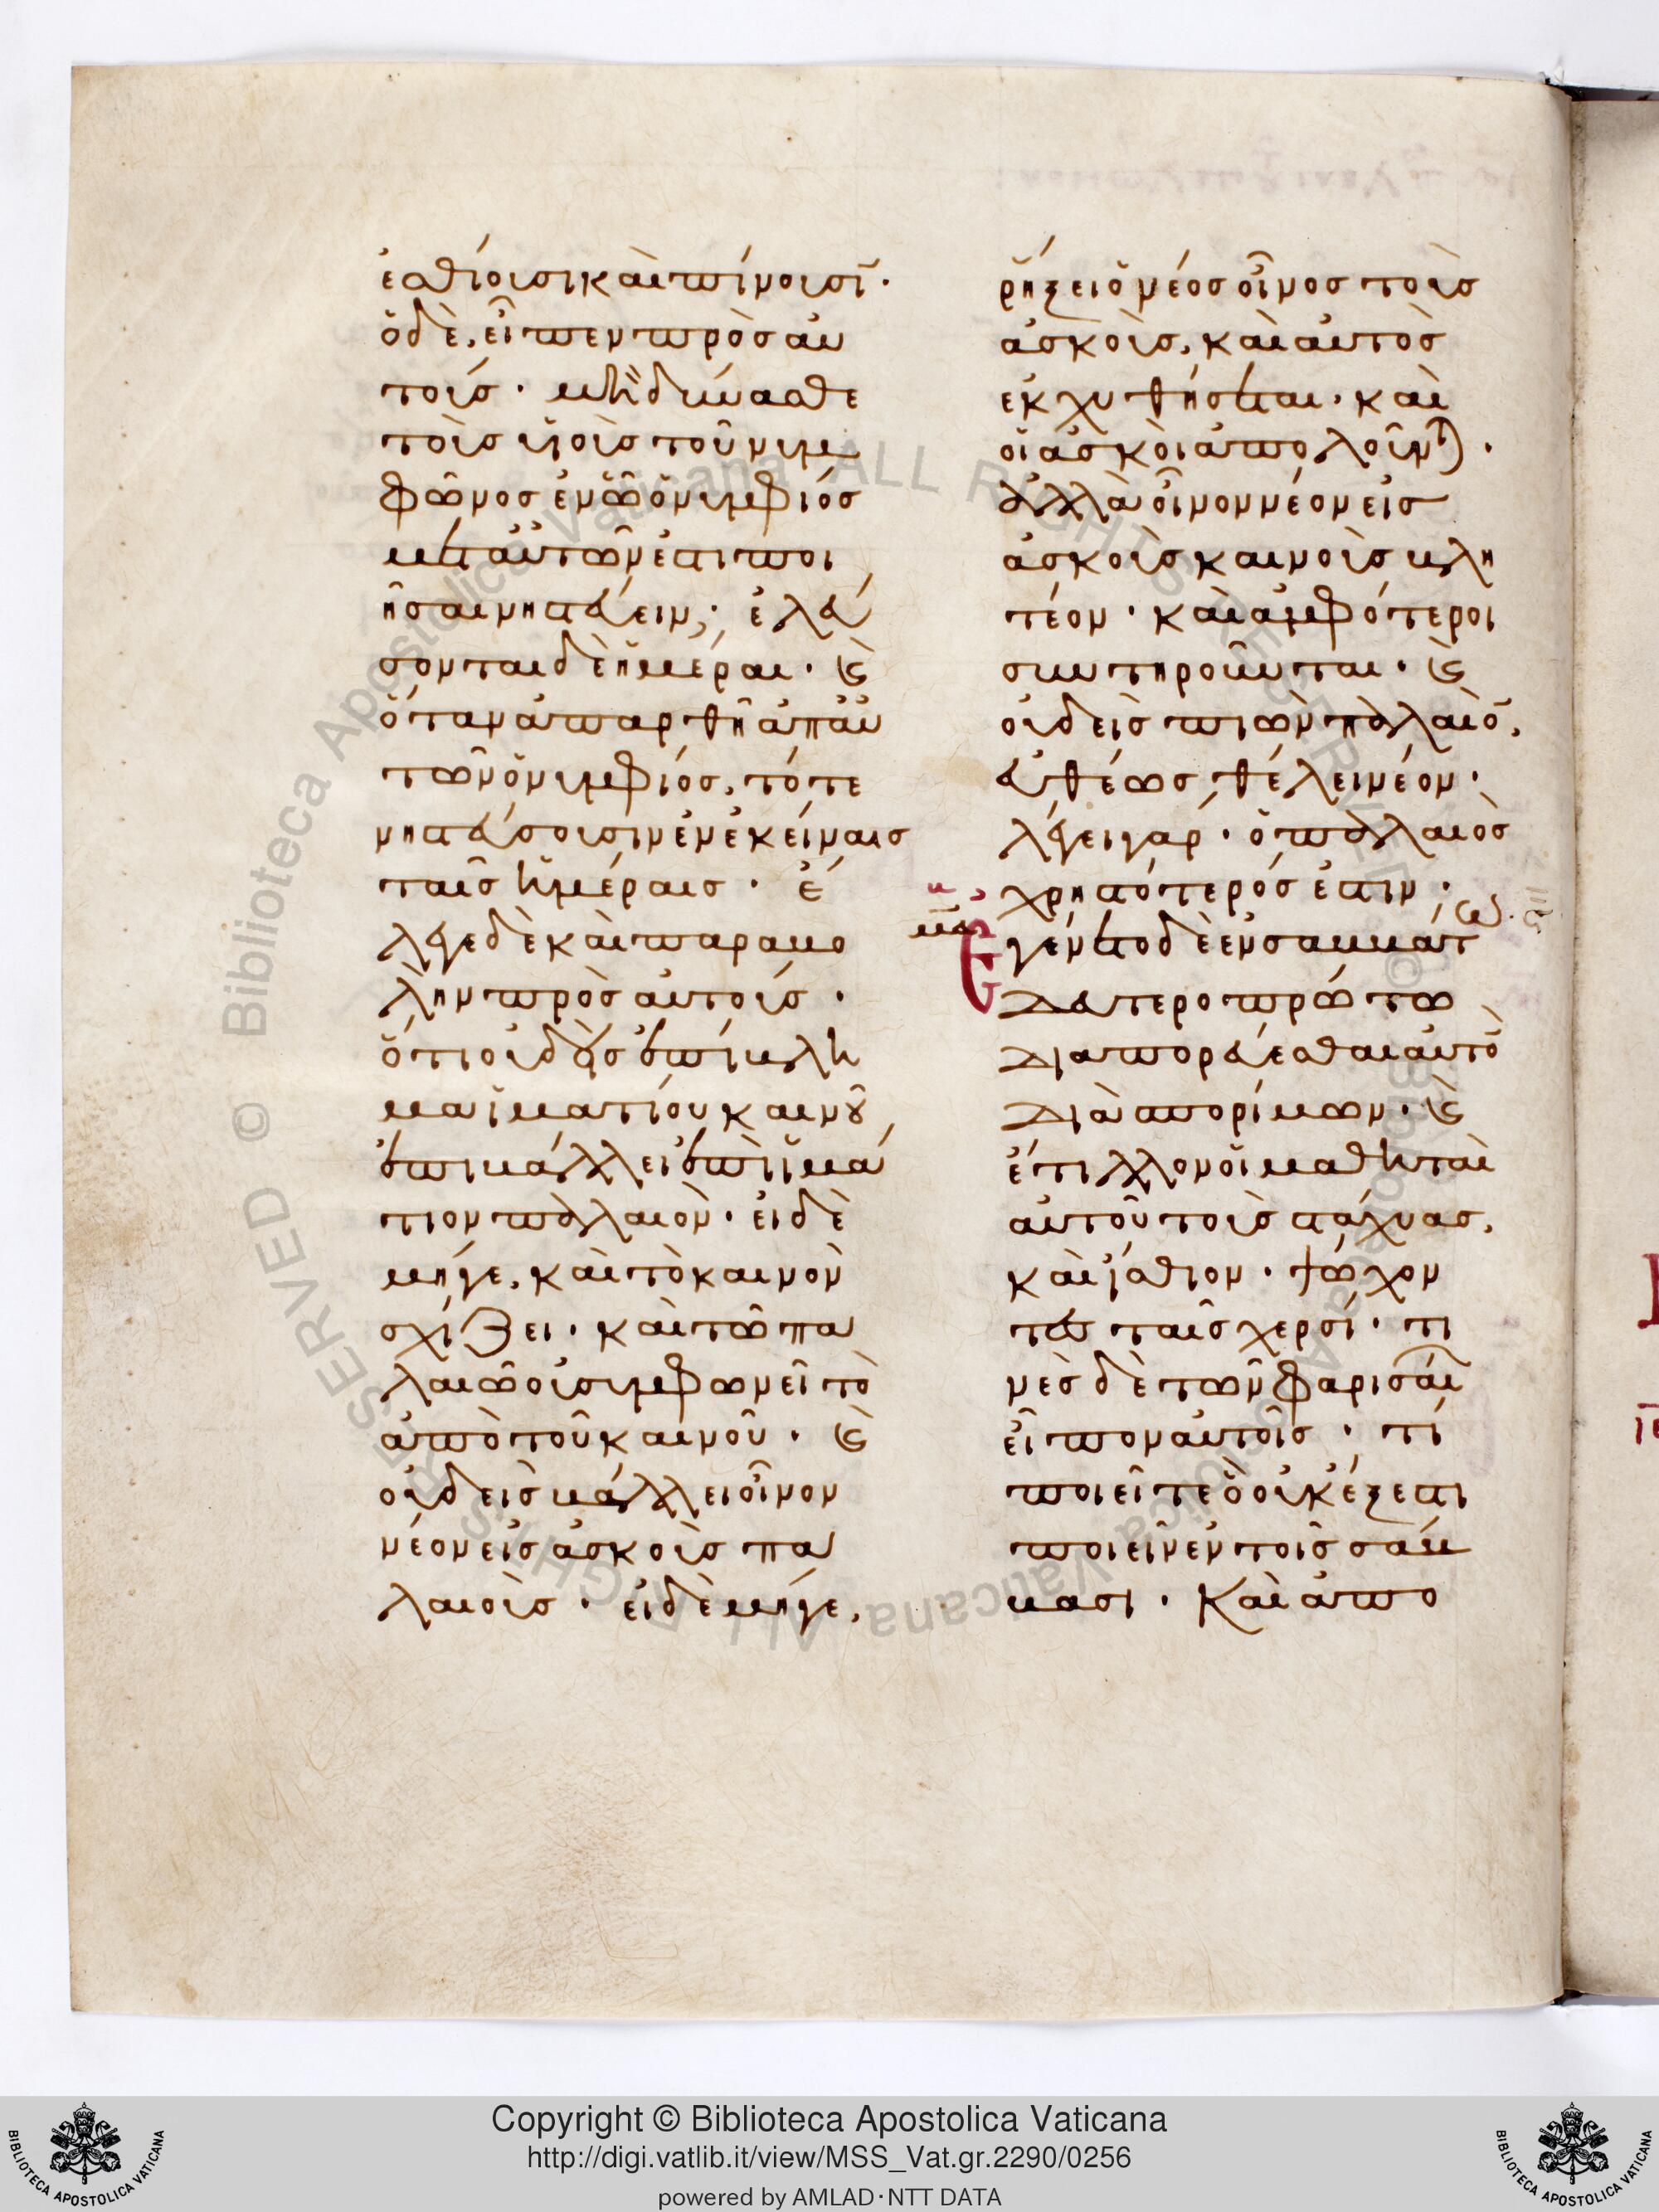 ἐσθίουσι καὶ πίνουσῖ·
ὁ δὲ, εἶπεν πρὸς αὐ
τούς· μὴ δύνασθε
τοὺς υἱοὺς τοῦ νυμ
φῶνος ἐν ᾧ ὁ νυμφίος
μετ αὐτῶν ἐστι ποι
ῆσαι νηστεύειν; ἐλεύ
σονται δὲ ἡμέραι· καὶ
ὅταν ἀπαρθῆ ἀπ αὐ
τῶν ὁ νυμφίος, τότε
νηστεύσουσιν ἐν ἐκείναις
ταῖς ἡμέραις· ἔ
λεγε δὲ καὶ παραβο
λὴν πρὸς αὐτούς·
ὅτι οὐδεὶς ἐπίβλη
μα ἱματίου καινοῦ
ἐπιβάλλει ἐπὶ ἱμά
τιον παλαιὸν· εἰ δὲ
μήγε, καὶ τὸ καινὸν
σχίζει· καὶ τῶ πα
λαιῶ οὐ συμφωνεῖ τὸ
ἀπὸ τοῦ καινοῦ· καὶ
οὐδεὶς βάλλει οἶνον
νέον εἰς ἀσκοὺς πα
λαιοὺς· εἰ δὲ μήγε,
ῥήξει ὁ νέος οἶνος τοὺς
ἀσκοὺς, καὶ αὐτὸς
ἐκχυθήσεται· καὶ
οἱ ἀσκοὶ ἀπολοῦντ(αι)·
ἀλλὰ οἶνον νέον εἰς
ἀσκοὺς καινοὺς βλη
τέον· καὶ ἀμφότεροι
συντηροῦνται· καὶ
οὐδεὶς πιὼν παλαιὸ̄,
εὐθέως θέλει νέον·
λέγει γάρ· ὁ παλαιὸς
χρηστότερός ἐστιν·
Ἐγένετο δὲ ἐν σαββάτω
δευτεροπρώτω
διαπορεύεσθαι αὐτὸ̄
διὰ σπορίμων· καὶ
ἔτιλλον οἱ μαθηταὶ
αὐτοῦ τοὺς στάχυας,
καὶ ἤσθιον· ψώχον
τες ταῖς χερσί· τι
νὲς δὲ τῶν φαρισαί
εἶπον αὐτοῖς· τί
ποιεῖτε ὃ οὐκ ἔξεστι
ποιεῖν ἐν τοῖς σάβ
βασι· Καὶ ἀπο
Copyright © Biblioteca Apostolica Vaticana
http://digi.vatlib.it/view/MSS_Vat.gr.2290/0256
powered by AMLAD·NTT DATA
BIBLIOTECA APOSTOLICA VATICANA
BIBLIOTECA APOSTOLICA VATICANA